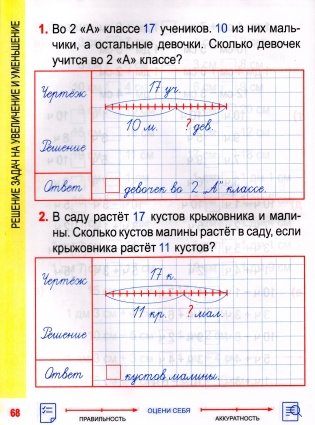 РЕШЕНИЕ ЗАДАЧ НА УВЕЛИЧЕНИЕ И УМЕНЬШЕНИЕ
1. Во 2 «А» классе 17 учеников. 10 из них маль-
чики, а остальные девочки. Сколько девочек
учится во 2 «А» классе?
Чертёж
17 уч.
10 м. ? дев.
Решение
Ответ
девочек во 2 „А" классе.
2. В саду растёт 17 кустов крыжовника и мали-
ны. Сколько кустов малины растёт в саду, если
крыжовника растёт 11 кустов?
Чертёж
17 к.
11 кр. ? мал.
Решение
Ответ
кустов малины.
68
ПРАВИЛЬНОСТЬ
ОЦЕНИ СЕБЯ
АККУРАТНОСТЬ